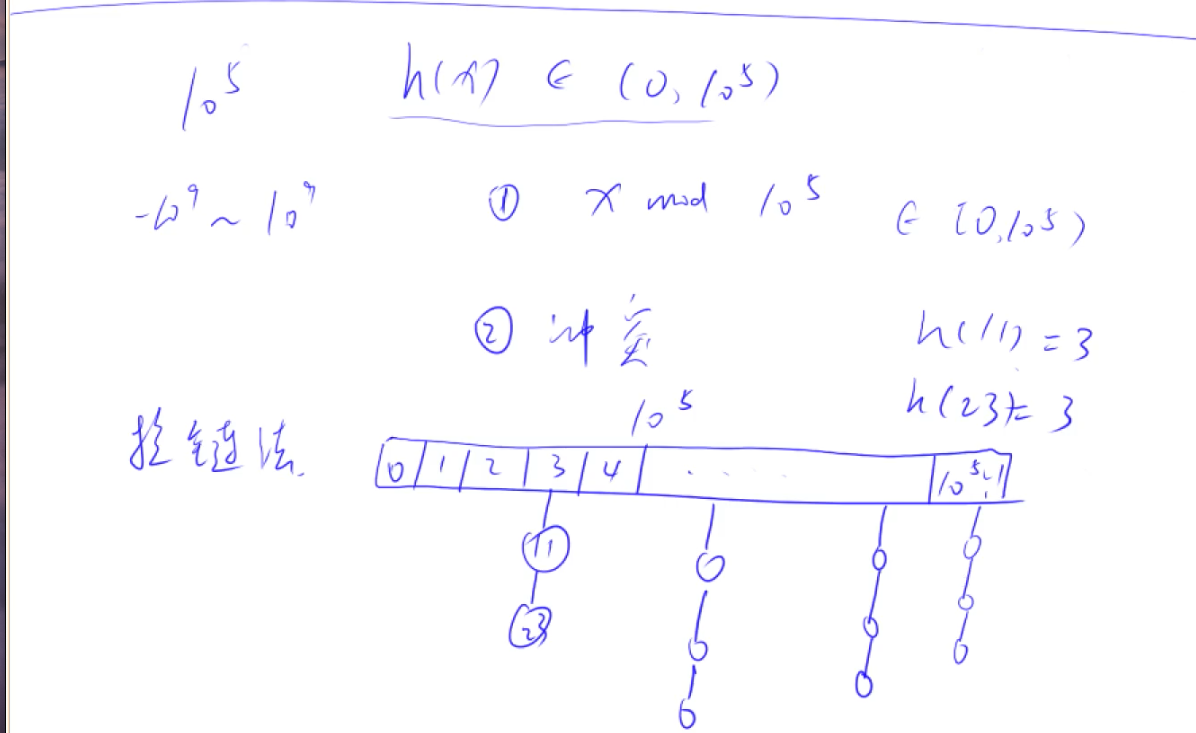 10⁵ h(x) ∈ (0, 10⁵)
-10⁹ ~ 10⁹ ① x mod 10⁵ ∈ [0, 10⁵)
② 冲突 h(11) = 3
h(23) = 3
拉链法 10⁵
0 1 2 3 4 ..... 10⁵-1
11
23